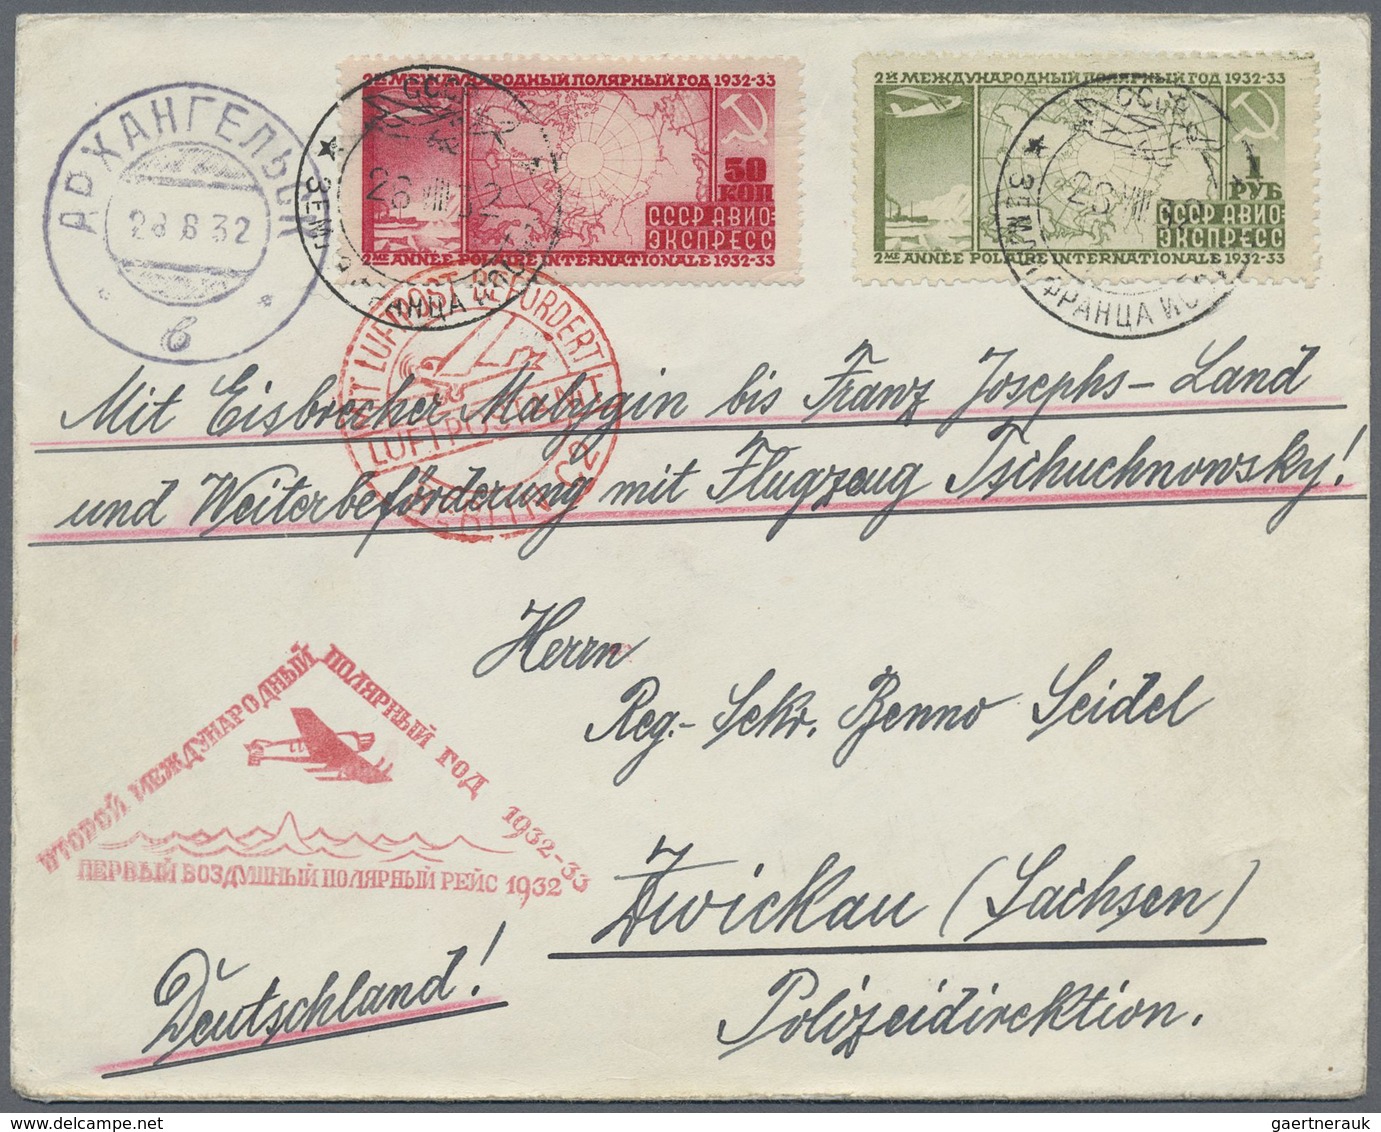 2й МЕЖДУНАРОДНЫЙ ПОЛЯРНЫЙ ГОД 1932-33
50
КОП
СССР АВИО=
ЭКСПРЕСС
2ME ANNÉE POLAIRE INTERNATIONALE 1932-33
2й МЕЖДУНАРОДНЫЙ ПОЛЯРНЫЙ ГОД 1932-33
1
РУБ
СССР АВИО=
ЭКСПРЕСС
2ME ANNÉE POLAIRE INTERNATIONALE 1932-33
АРХАНГЕЛЬСК
28 8 32
в
СССР
26 VIII 32
ЗЕМЛЯ ФРАНЦА ИОС
СССР
26 VIII 32
ЗЕМЛЯ ФРАНЦА ИОС
MIT LUFTPOST BEFÖRDERT
LUFTPOSTAMT
BERLIN C 2
Mit Eisbrecher Malygin bis Franz Josephs-Land
und Weiterbeförderung mit Flugzeug Tschuchnowsky!
Herrn
Reg.-Sekr. Benno Seidel
Zwickau (Sachsen)
Polizeidirektion.
ВТОРОЙ МЕЖДУНАРОДНЫЙ ПОЛЯРНЫЙ ГОД 1932-33
ПЕРВЫЙ ВОЗДУШНЫЙ ПОЛЯРНЫЙ РЕЙС 1932
Deutschland!
gaertnerauk